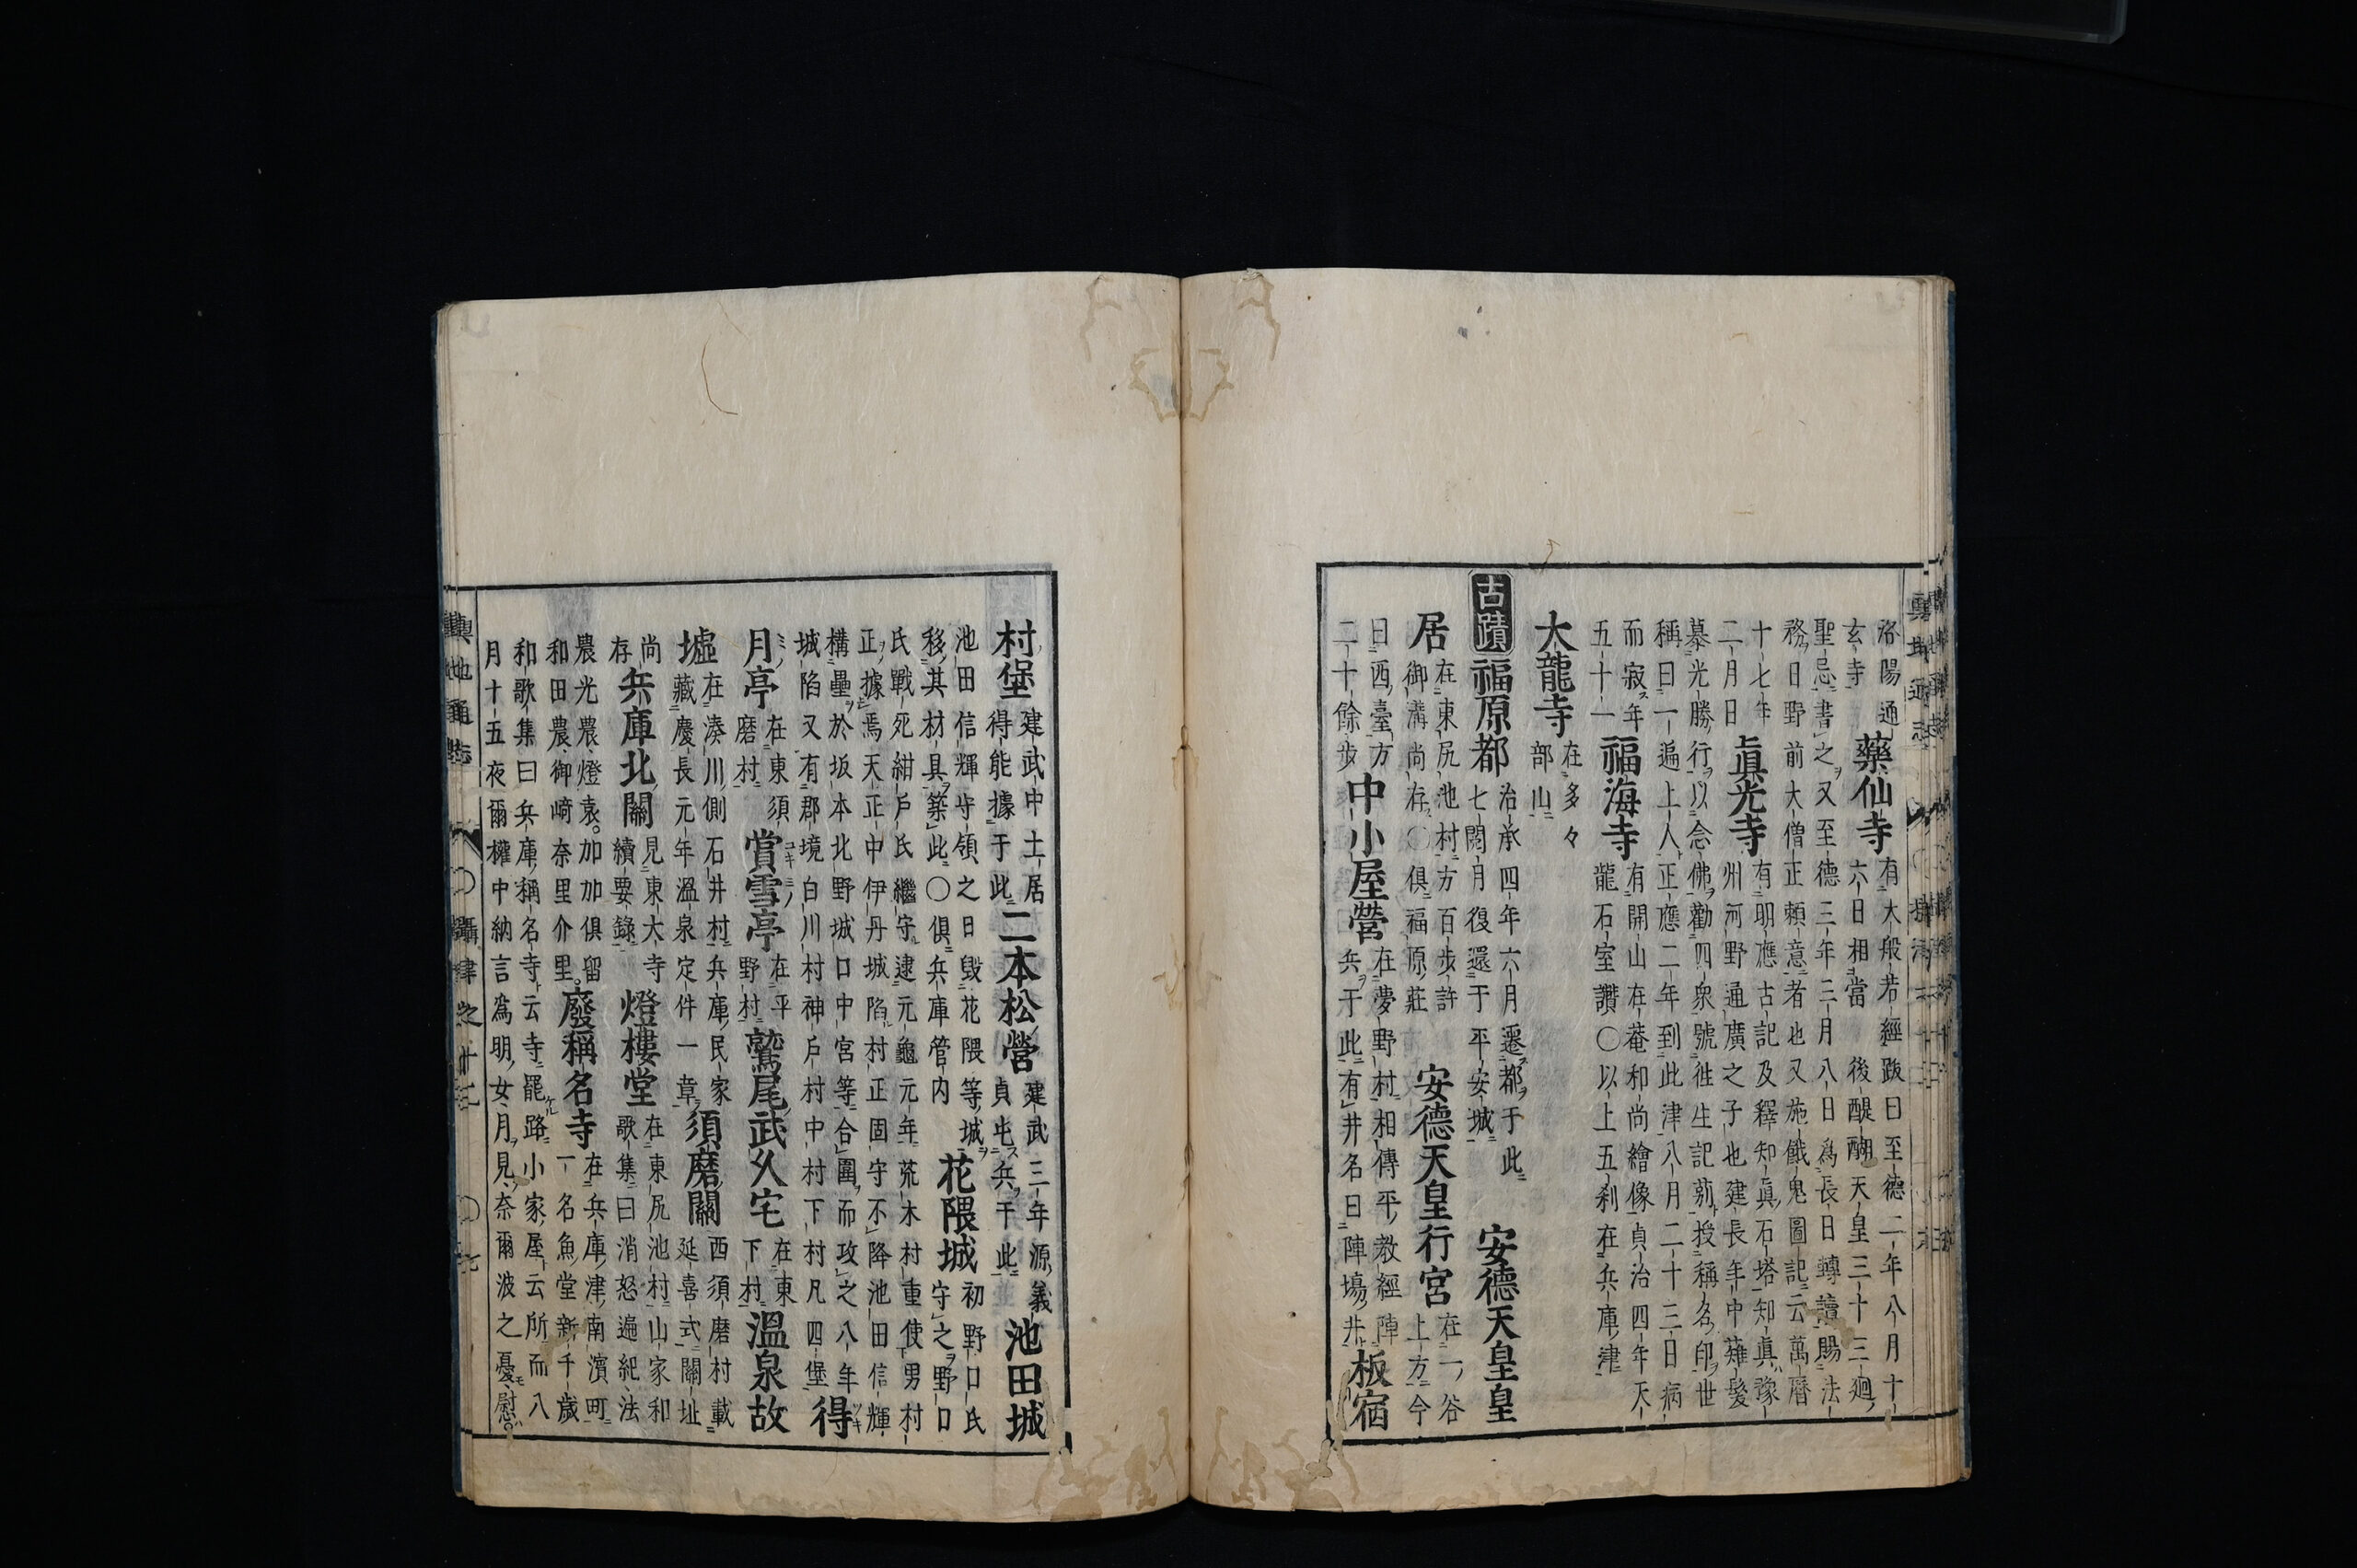 洛陽通
玄寺
藥仙寺
有大般若經跋曰至德二年八月十
六日相當後醍醐天皇三十三廻
聖忌書之又至德三年三月八日爲長日轉讀賜法
務日野前大僧正賴意者也又施餓鬼圖記云萬曆
十七年
二月日
眞光寺
有明應古記及釋知眞石塔知眞豫
州河野通廣之子也建長年中薙髮
慕光勝行以念佛勸四衆號徃生記莂授稱名印世
稱曰一遍上人正應二年到此津八月二十三日病
而寂年
五十一
福海寺
有開山在菴和尚繪像貞治四年天
龍石室讚〇以上五刹在兵庫津
大龍寺
在多々
部山
古蹟
福原都
治承四年六月遷都于此
七閱月復還于平安城
安德天皇皇
居
在東尻池村方百步許
御溝尚存〇俱福原莊
安德天皇行宮
在一谷
上方今
曰西臺方
二十餘步
中小屋營
在夢野村相傳平教經陣
兵于此有井名曰陣場井
板宿
村堡
建武中土居
得能據于此
二本松營
建武三年源義
貞屯兵于此
池田城
池田信輝守領之日毀花隈等城
移其材具築此〇俱兵庫管内
花隈城
初野口氏
守之野口
氏戰死紺戶氏繼守逮元龜元年荒木村重使男村
正據焉天正中伊丹城陷村正固守不降池田信輝
構壘於坂本北野城口中宮等合圍而攻之八年
城陷又有郡境白川村神戶村中村下村凡四堡
得
月亭
在東須
磨村
賞雪亭
在平
野村
鷲尾武久宅
在東
下村
溫泉故
墟
在湊川側石井村兵庫民家
藏慶長元年溫泉定件一章
須磨關
西須磨村載
延喜式關址
尚
存
兵庫北關
見東大寺
續要錄
燈樓堂
在東尻池村山家和
歌集曰消怒遍紀法
農光農燈袁加加俱留
和田農御崎奈里介里
廢稱名寺
在兵庫津南濱町
一名魚堂新千歲
和歌集曰兵庫稱名寺云寺罷路小家屋云所而八
月十五夜爾權中納言爲明女月見奈爾波之憂慰
輿地通志
〇攝津之